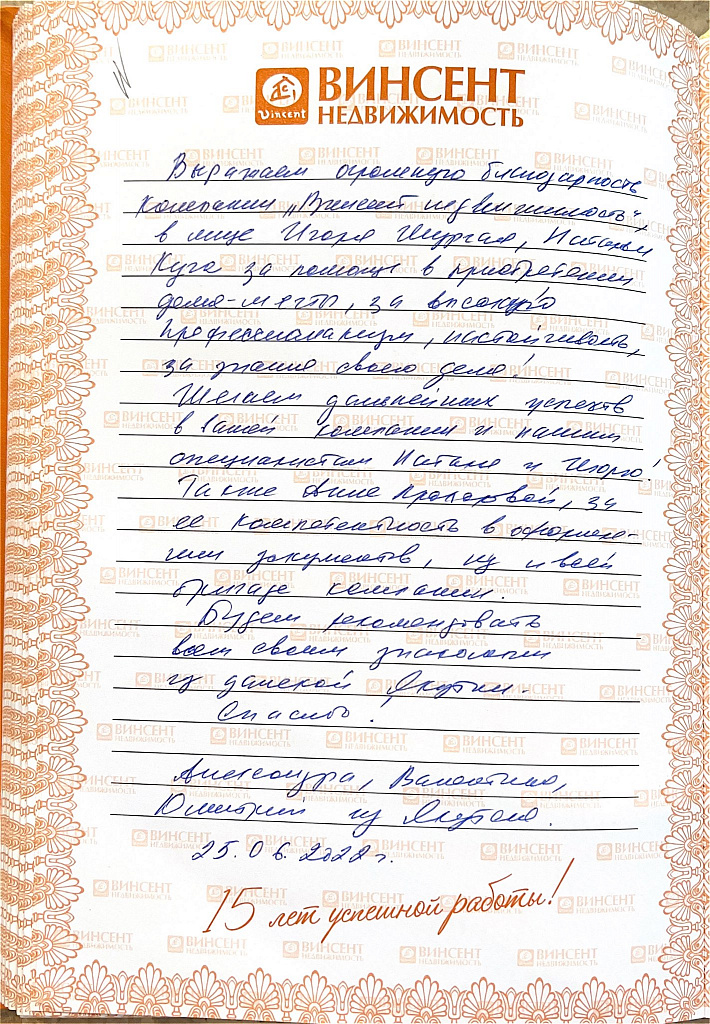 Vincent
ВИНСЕНТ
НЕДВИЖИМОСТЬ
Выражаем огромную благодарность
компании „Винсент недвижимость“,
в лице Игоря, Натальи
Куча за помощь в приобретении
дома-мечты, за высокую
профессионализм, настойчивость,
за знание своего дела!
Желаем дальнейших успехов
в вашей компании и нашим
специалистам Наташе и Игорю!
Также Анне Прохоровой, за
её компетентность в оформле-
нии документов, ну и всей
бригаде компании.
Будем рекомендовать
всем своим знакомым
из далекой Якутии.
Спасибо!
Александра, Валентина,
Дмитрий из Якутска.
25.06.2022 г.
15 лет успешной работы!